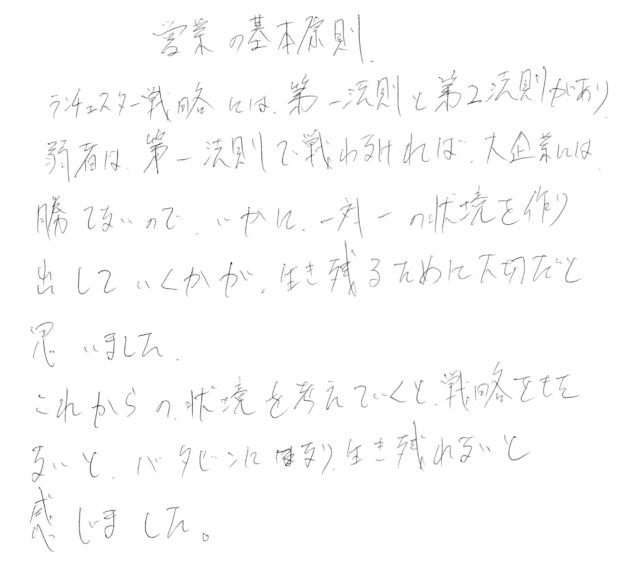 営業の基本原則.
ランチェスター戦略には、第一法則と第2法則があり
弱者は、第一法則で戦わなければ、大企業には、
勝てないので、いかに、一対一の状境を作り
出していくかが、生き残るために大切だと
思いました.
これからの、状境を考えていくと、戦略をもた
ないと、バタビンになり、生き残れないと
感じました。